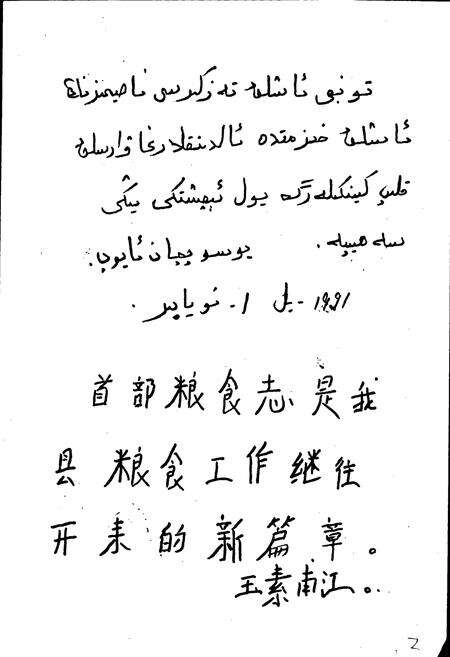 تۇنجى ئاشلىق تەزكىرىسى ناھىيىمىزنىڭ
ئاشلىق خىزمىتىدە ئالدىنقىلارغا ۋارىسلىق
قىلىپ كېيىنكىلەرگە يول ئېچىشتىكى يېڭى
سەھىپە. يۈسۈپجان ئايۇپ.
1991 - يىل 1 - نويابىر.
首部粮食志是我
县粮食工作继往
开来的新篇章。
玉素甫江。
2